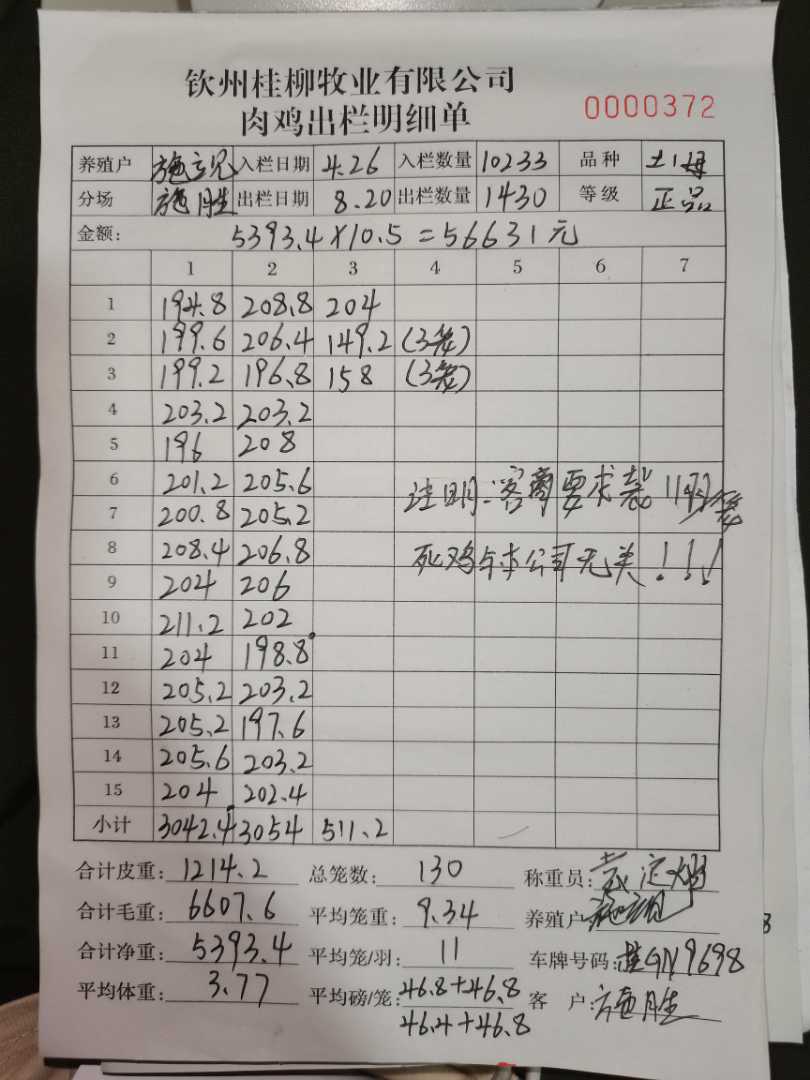 钦州桂柳牧业有限公司
肉鸡出栏明细单
0000372
养殖户 施立兄 入栏日期 4.26 入栏数量 10233 品种 土1母
分场 施胜 出栏日期 8.20 出栏数量 1430 等级 正品
金额: 5393.4×10.5=56631元
1 2 3 4 5 6 7
1 194.8 208.8 204
2 199.6 206.4 149.2 (3笼)
3 199.2 196.8 158 (3笼)
4 203.2 203.2
5 196 208
6 201.2 205.6
7 200.8 205.2
8 208.4 206.8
9 204 206
10 211.2 202
11 204 198.8
12 205.2 203.2
13 205.2 197.6
14 205.6 203.2
15 204 202.4
小计 3042.4 3054 511.2
注明:客商要求装11羽/笼
死鸡与本公司无关!!!
合计皮重: 1214.2 总笼数: 130 称重员:
合计毛重: 6607.6 平均笼重: 9.34 养殖户
合计净重: 5393.4 平均笼/羽: 11 车牌号码: 桂GN9698
平均体重: 3.77 平均磅/笼: 46.8+46.8 客 户: 施胜
46.4+46.8